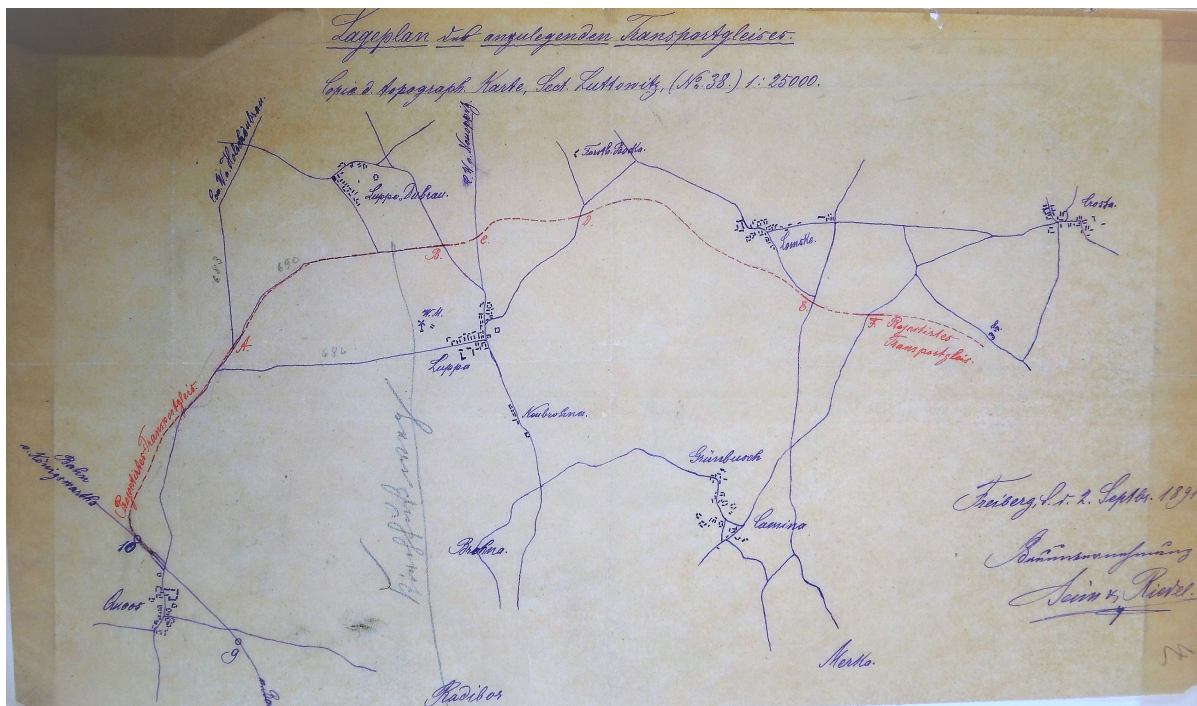 Lageplan des anzulegenden Transportgleises.
Copie d. topograph. Karte, Sect. Luttowitz, (No. 38.) 1:25000.
Luppa-Dubrau.
Forsth. Bocka.
Crosta.
Lomske.
683
690
686
A.
B.
C.
D.
E.
F.
Projectirtes
Transportgleis.
W.M.
Luppa
Neubrohna.
Projectirtes Transportgleis.
Bahn
n. Königswartha
Grünbusch
Camina
Brohna.
10
Quoos
9
Merka.
Radibor
Freiberg, d. 2. Septbr. 189
Bauunternehmung
& Riedel.